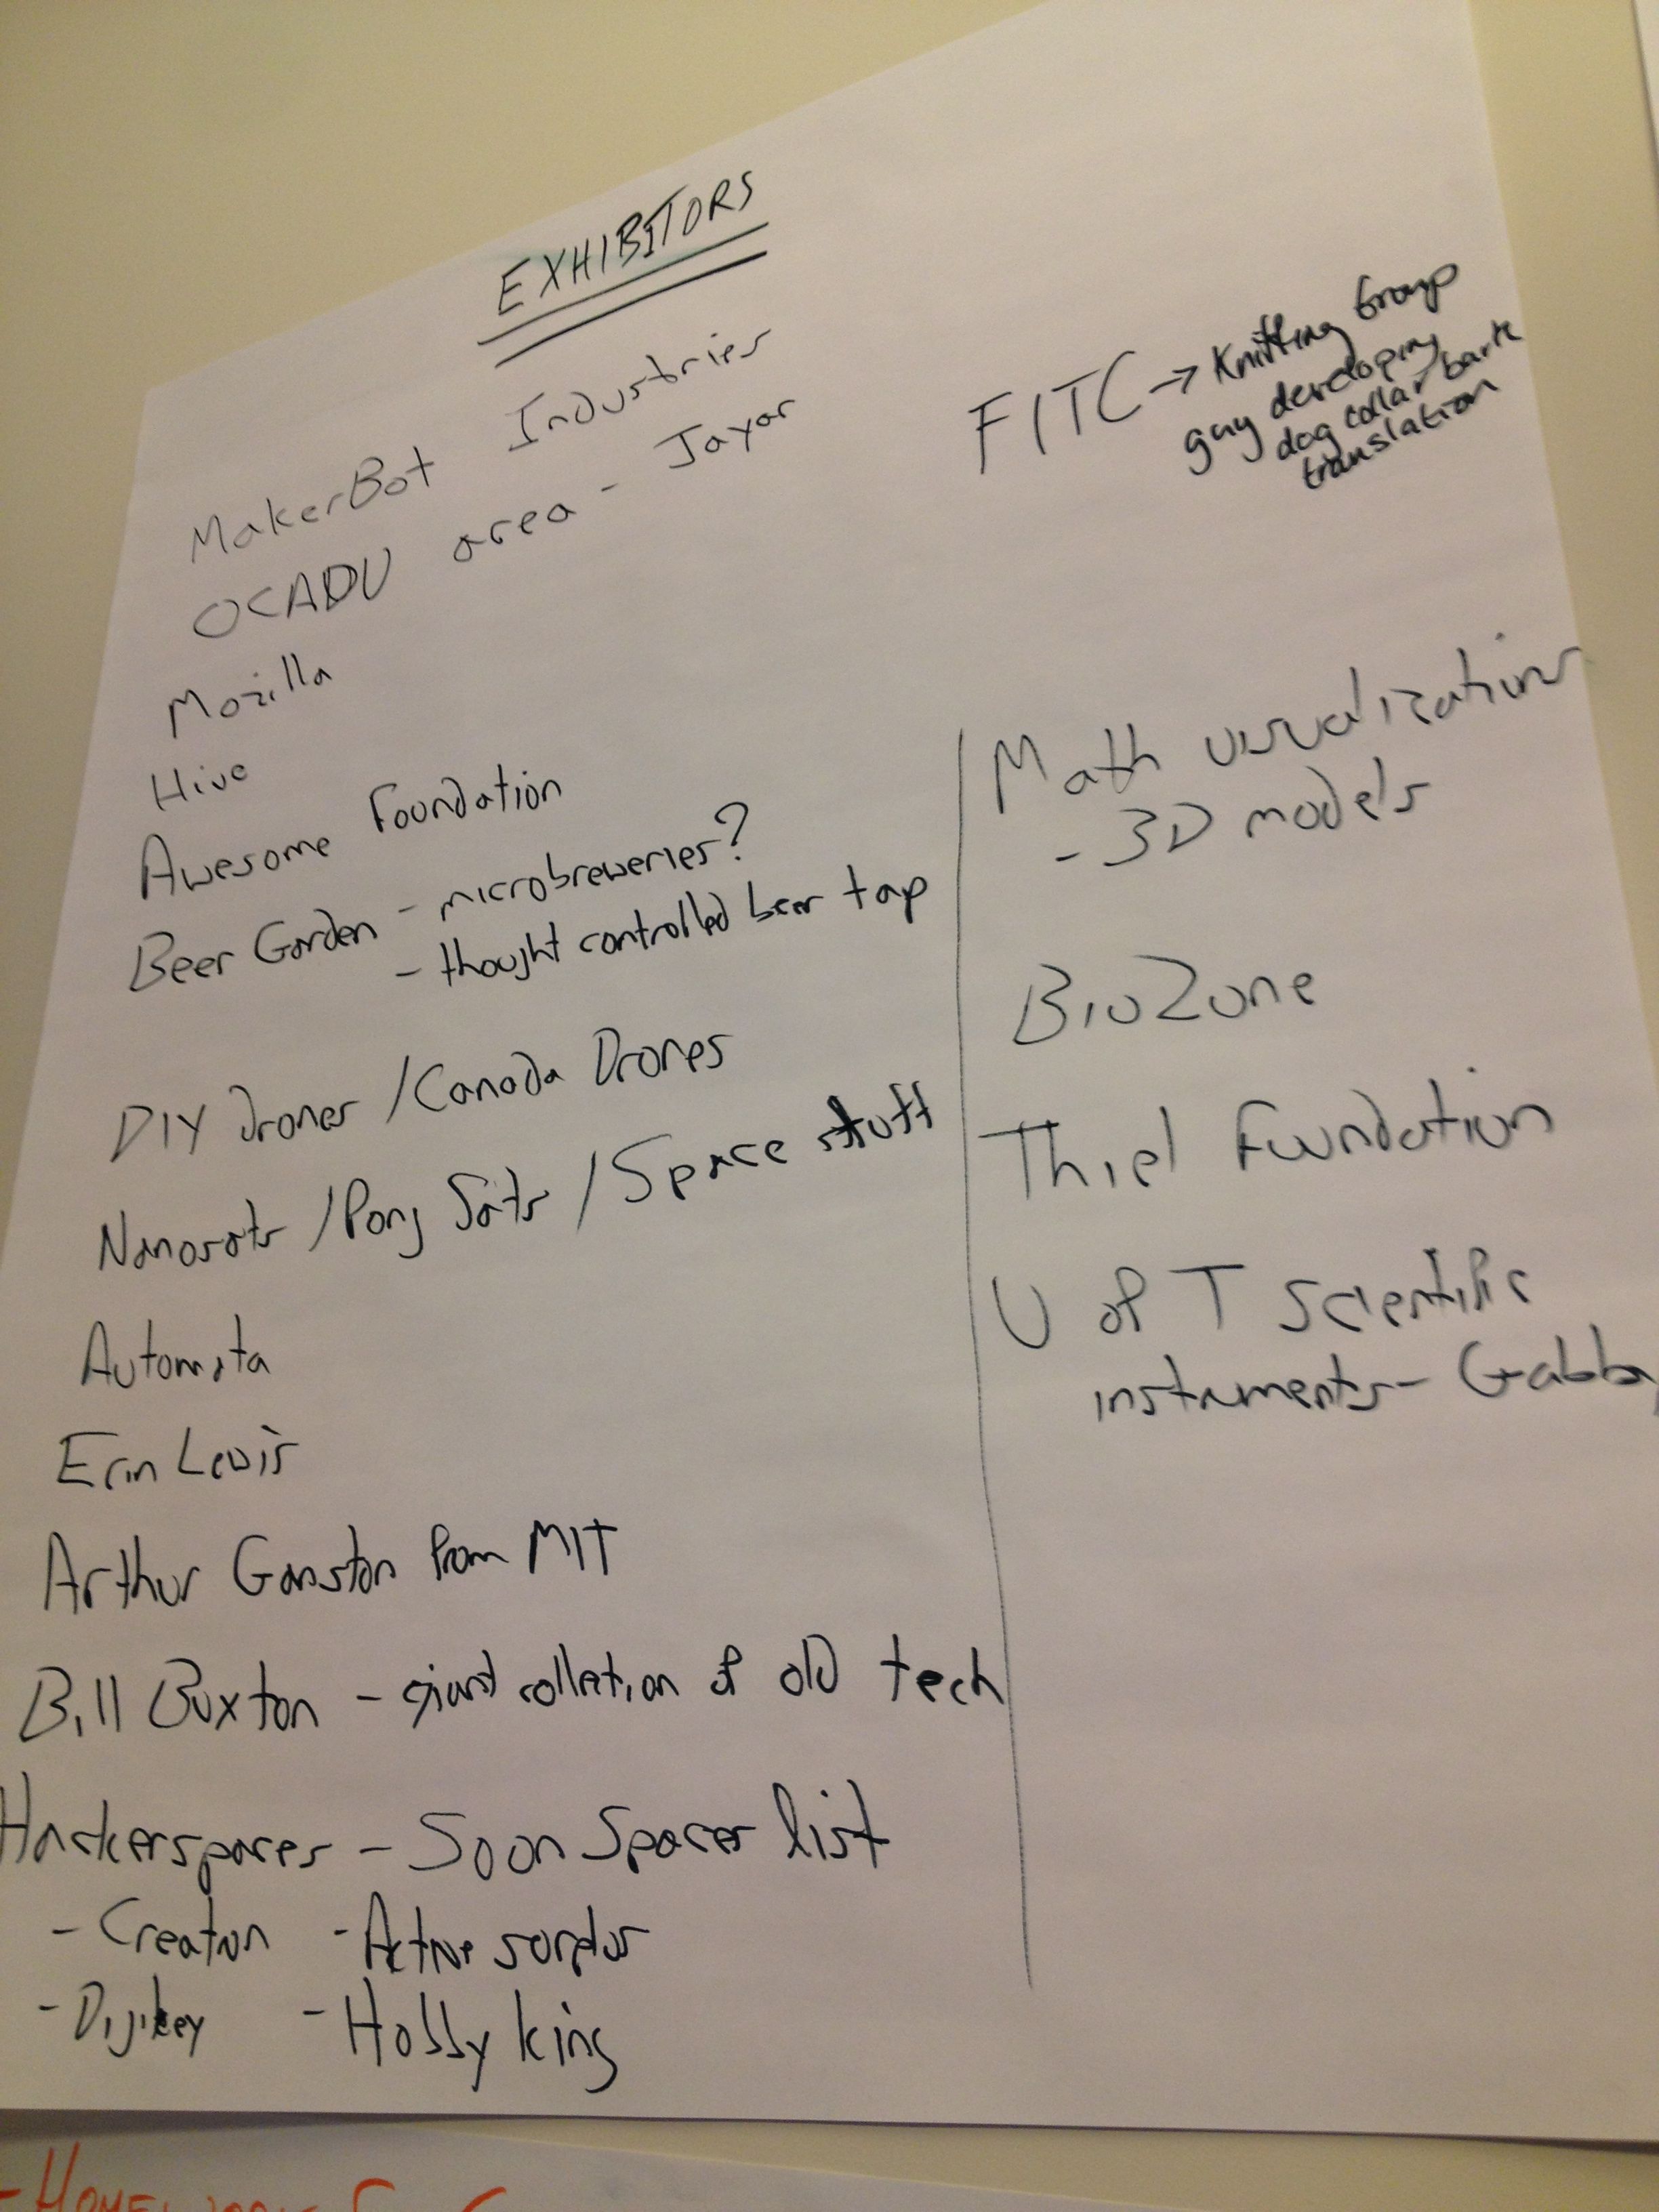 EXHIBITORS
MakerBot Industries
OCADU area - Jayar
Mozilla
Hive
Awesome Foundation
Beer Garden - microbreweries?
- thought controlled beer tap
DIY Drones / Canada Drones
Nanosats / Pong Sats / Space stuff
Automata
Erin Lewis
Arthur Ganston from MIT
Bill Buxton - giant collection of old tech
Hackerspaces - Soon Spacer list
- Creatron - Active surplus
- Digikey - Hobby king
FITC → Knitting Group
guy developing
dog collar bark
translation
Math visualizations
- 3D models
BioZone
Thiel Foundation
U of T Scientific
instruments - Gabby